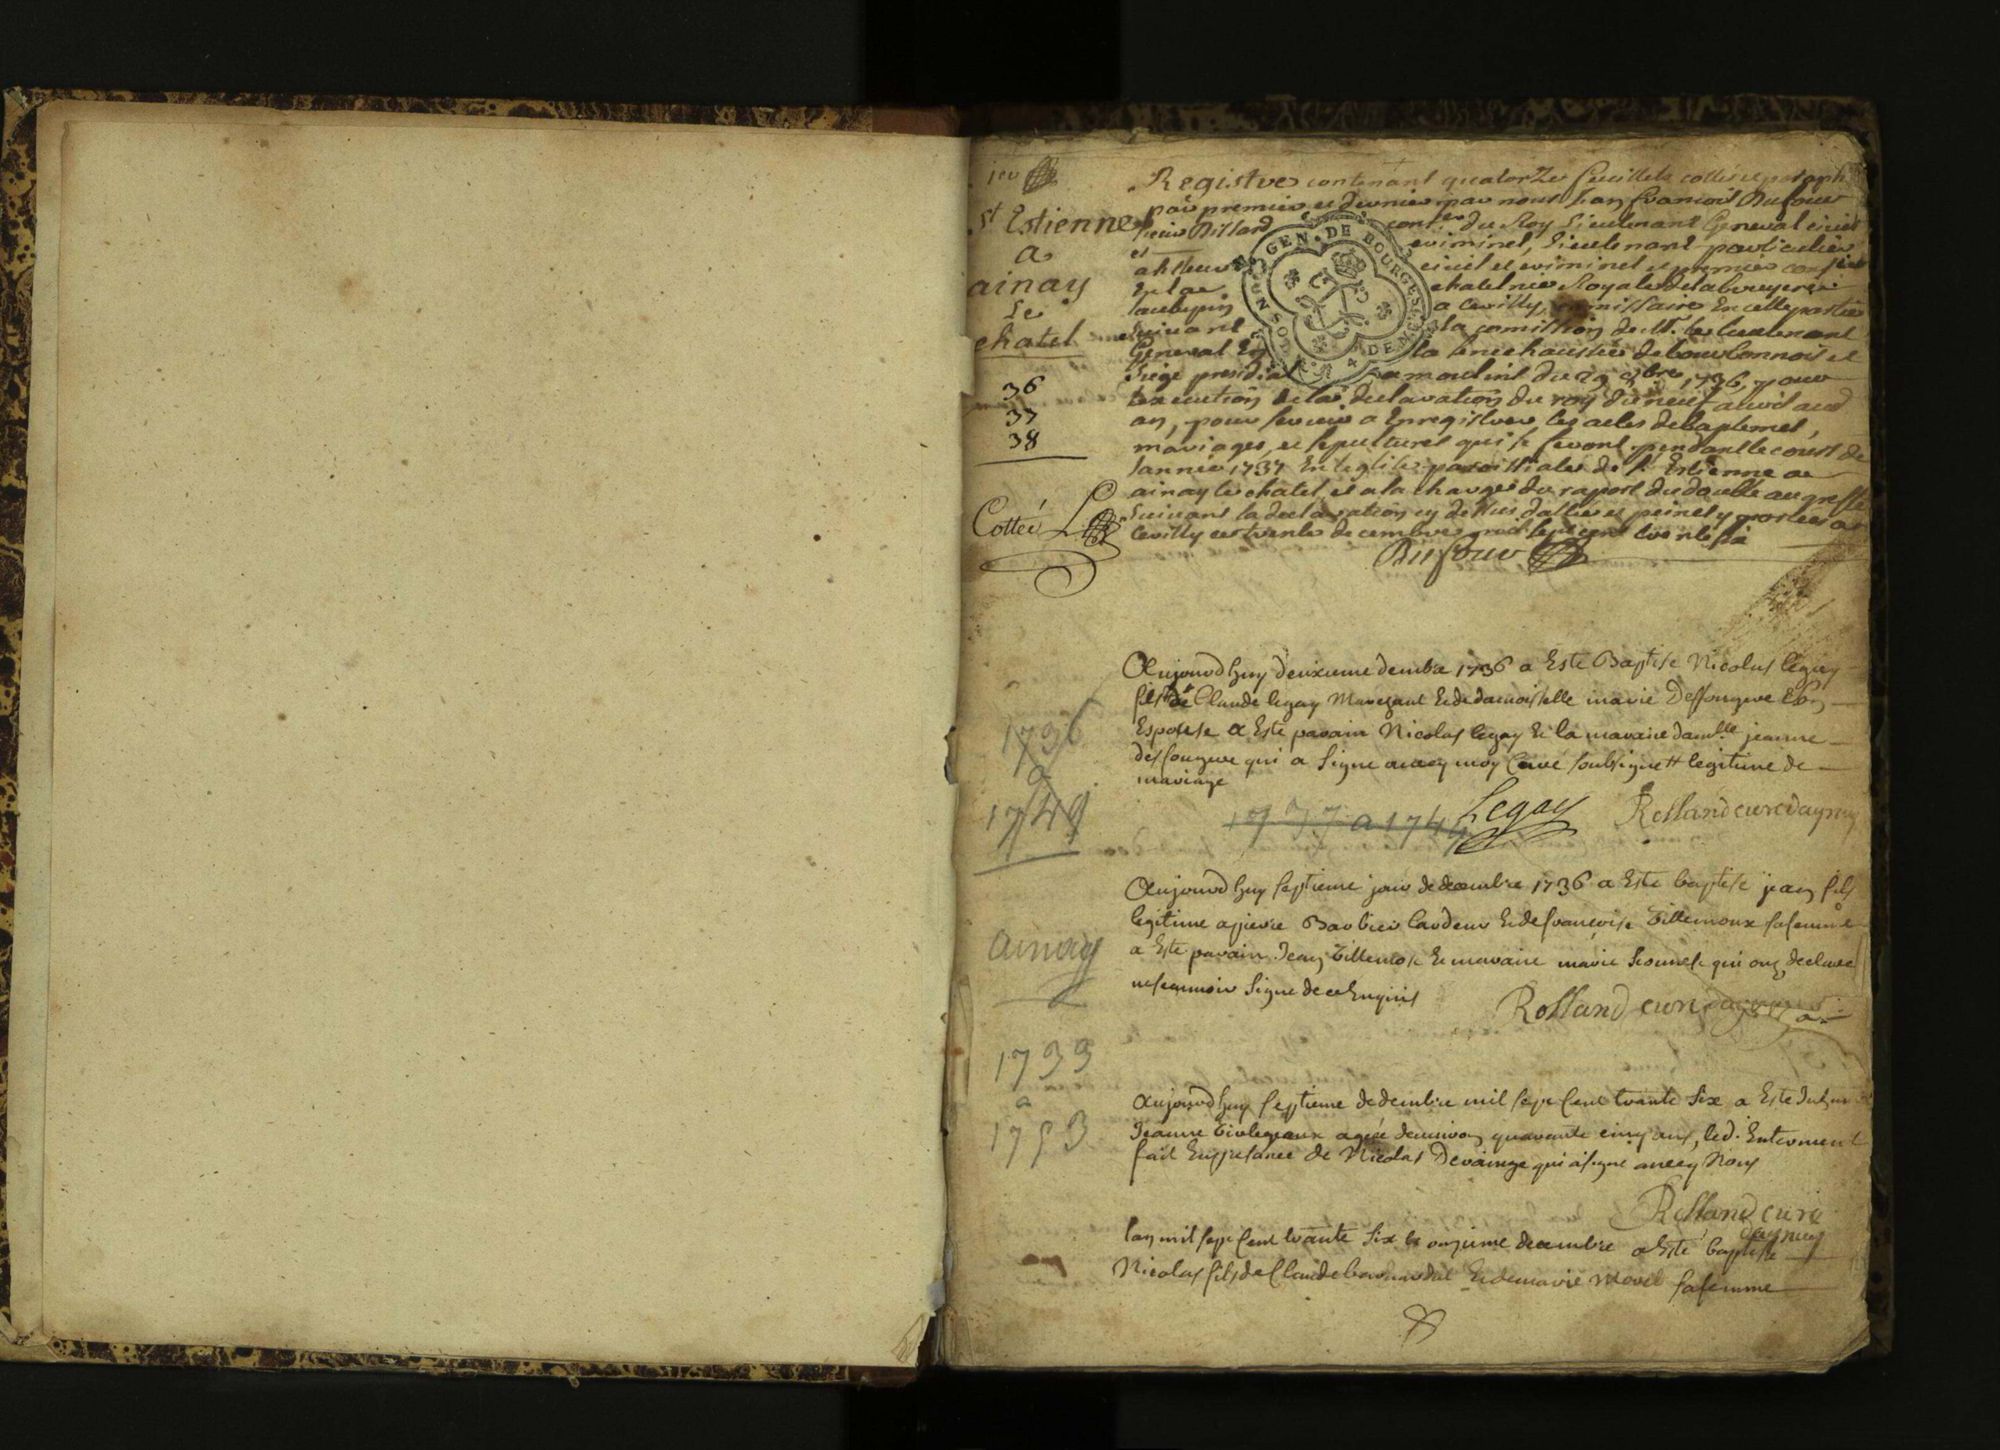 St Estienne
a
ainay
Le
chatel
36
37
38
Cottée L
Registre contenant quatorze feuillets cottés et paraph
par premier et dernier par nous Jean francois Dufour
sieur Billard conser du Roy Lieutenant General civil
et criminel, Lieutenant particulier
civil et criminel et premier
En la chatelnie Royale de la bruyere
laubepin a Cerilly, comissaire En cette partie
suivant la comission de Mr. le Lieutenant
General En la senechaussée de bourbonnois et
siege presidial a moulins du 29 9bre 1736, pour
execution de la declaration du roy du neuf avril aud
an, pour servir a Enregistrer les actes de baptemes,
mariages, et sepultures qui se feront pendant le court de
lannée 1737 En leglise paroissiale de st Estienne de
ainay le chatel, et a la charge du raport du double au greffe
suivant la declaration cy dessus dattée et peines y portées a
Cerilly ce trente decembre mil sept cent trente six
Dufour
1736
a
1749
Aujourdhuy deuxieme decembre 1736 a Este Baptise Nicolas legay
fils de Claude legay Marchant Et de damoiselle marie Desfougere son
Espouse a Este parain Nicolas legay Et la maraine damlle jeanne
desfougere qui a signe avecq moy Curé soubsigne # legitime de
mariage
1737 a 1749
Legay
Rolland curé daynay
ainay
Aujourdhuy septieme jour de decembre 1736 a Este baptise jean fils
legitime a pierre Barbier Cardeur Et de francoise Tillemoux sa femme
a Este parain Jean Et maraine marie qui ont declare
ne scavoir signe de ce Enquis
Rolland curé daynay
1733
a
1753
Aujourdhuy septieme decembre mil sept cent trante six a Este Inhumé
Jeanne agée denviron quarante cinq ans, led. Enterment
fait En presance de Nicolas qui a signe avecq Nous
Rolland curé
daynay
lan mil sept cent trante six le onzieme decembre a Esté baptise
Nicolas fils de Claude Et de marie Morel sa femme